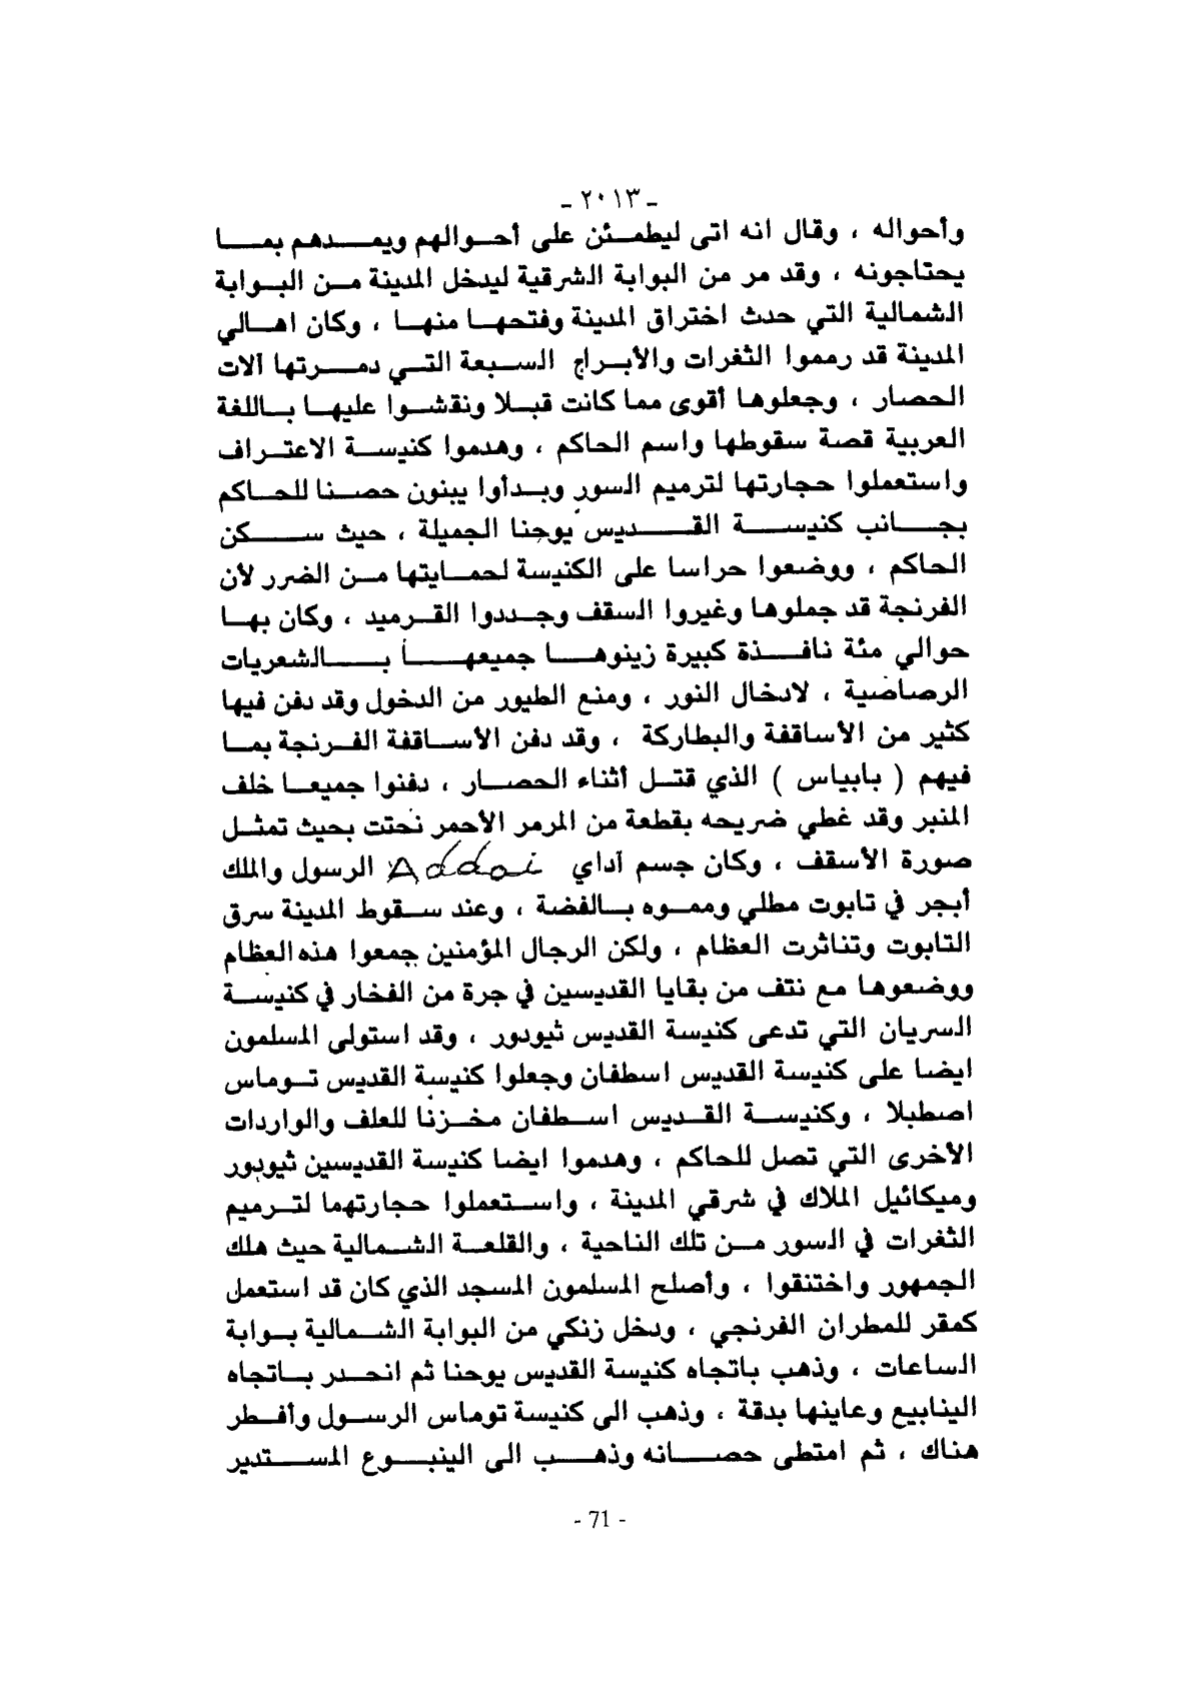 - ٢٠١٣ -
وأحواله ، وقال انه اتى ليطمئن على أحوالهم ويمدهم بما
يحتاجونه ، وقد مر من البوابة الشرقية ليدخل المدينة من البوابة
الشمالية التي حدث اختراق المدينة وفتحها منها ، وكان اهالي
المدينة قد رمموا الثغرات والأبراج السبعة التي دمرتها آلات
الحصار ، وجعلوها أقوى مما كانت قبلا ونقشوا عليها باللغة
العربية قصة سقوطها واسم الحاكم ، وهدموا كنيسة الاعتراف
واستعملوا حجارتها لترميم السور وبدأوا يبنون حصنا للحاكم
بجانب كنيسة القديس يوحنا الجميلة ، حيث سكن
الحاكم ، ووضعوا حراسا على الكنيسة لحمايتها من الضرر لأن
الفرنجة قد جملوها وغيروا السقف وجددوا القرميد ، وكان بها
حوالي مئة نافذة كبيرة زينوها جميعها بالشعريات
الرصاصية ، لادخال النور ، ومنع الطيور من الدخول وقد دفن فيها
كثير من الأساقفة والبطاركة ، وقد دفن الأساقفة الفرنجة بما
فيهم ( بابياس ) الذي قتل أثناء الحصار ، دفنوا جميعا خلف
المنبر وقد غطي ضريحه بقطعة من المرمر الأحمر نحتت بحيث تمثل
صورة الأسقف ، وكان جسم آداي Addai الرسول والملك
أبجر في تابوت مطلي ومموه بالفضة ، وعند سقوط المدينة سرق
التابوت وتناثرت العظام ، ولكن الرجال المؤمنين جمعوا هذه العظام
ووضعوها مع نتف من بقايا القديسين في جرة من الفخار في كنيسة
السريان التي تدعى كنيسة القديس ثيودور ، وقد استولى المسلمون
ايضا على كنيسة القديس اسطفان وجعلوا كنيسة القديس توماس
اصطبلا ، وكنيسة القديس اسطفان مخزنا للعلف والواردات
الأخرى التي تصل للحاكم ، وهدموا ايضا كنيسة القديسين ثيودور
وميكائيل الملاك في شرقي المدينة ، واستعملوا حجارتهما لترميم
الثغرات في السور من تلك الناحية ، والقلعة الشمالية حيث هلك
الجمهور واختنقوا ، وأصلح المسلمون المسجد الذي كان قد استعمل
كمقر للمطران الفرنجي ، ودخل زنكي من البوابة الشمالية بوابة
الساعات ، وذهب باتجاه كنيسة القديس يوحنا ثم انحدر باتجاه
الينابيع وعاينها بدقة ، وذهب الى كنيسة توماس الرسول وأفطر
هناك ، ثم امتطى حصانه وذهب الى الينبوع المستدير
- 71 -